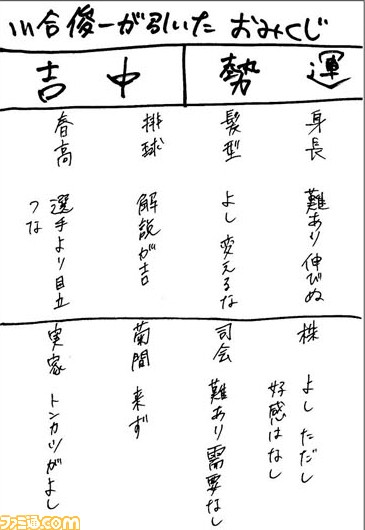 川合俊一が引いた おみくじ
運勢
中吉
身長 難あり 伸びぬ
髪型 よし 変えるな
排球 解説が吉
春高 選手より目立
つな
株 よし ただし
好感はなし
司会 難あり 需要なし
菊間 来ず
実家 トンカツがよし
ファミ通.com